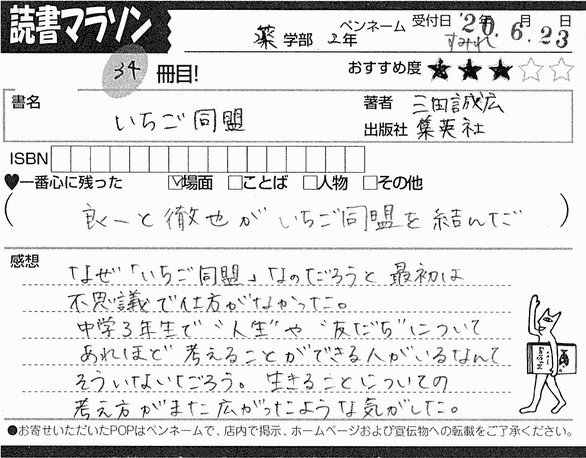 読書マラソン
薬学部 2年 ペンネーム すみれ 受付日 '20年6月23日
34冊目!
おすすめ度 ★★★☆☆
書名 いちご同盟
著者 三田誠広
出版社 集英社
ISBN
♥一番心に残った ☑場面 □ことば □人物 □その他
(良一と徹也がいちご同盟を結んだ)
感想
なぜ「いちご同盟」なのだろうと最初は
不思議で仕方がなかった。
中学3年生で"人生"や"友だち"について
あれほど考えることができる人がいるなんて
そういないだろう。生きることについての
考え方がまた広がったような気がした。
●お寄せいただいたPOPはペンネームで、店内で掲示、ホームページおよび宣伝物への転載をご了承ください。